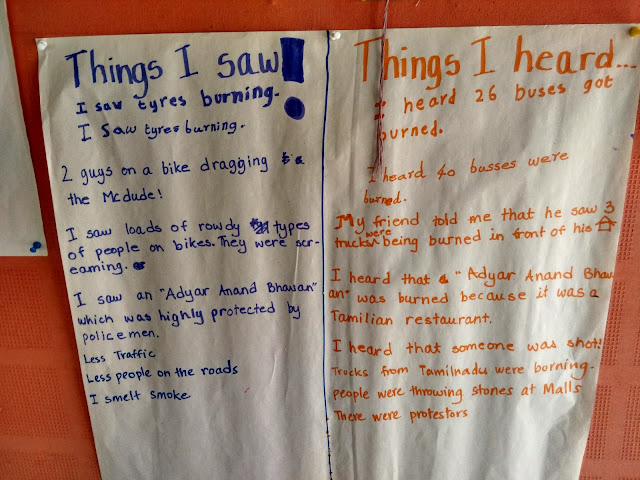 Things I saw!
I saw tyres burning.
I saw tyres burning.
2 guys on a bike dragging a
the Mcdude!
I saw loads of rowdy types
of people on bikes. They were scr-
eaming.
I saw an "Adyar Anand Bhavan"
which was highly protected by
policemen.
Less Traffic
Less people on the roads
I smelt smoke
Things I heard...
I heard 26 buses got
burned.
I heard 40 busses were
burned.
My friend told me that he saw 3
trucks were being burned in front of his
I heard that a "Adyar Anand Bhav
an" was burned because it was a
Tamilian restaurant.
I heard that someone was shot!
Trucks from Tamilnadu were borning.
people were throwing stones at Malls
There were protestors